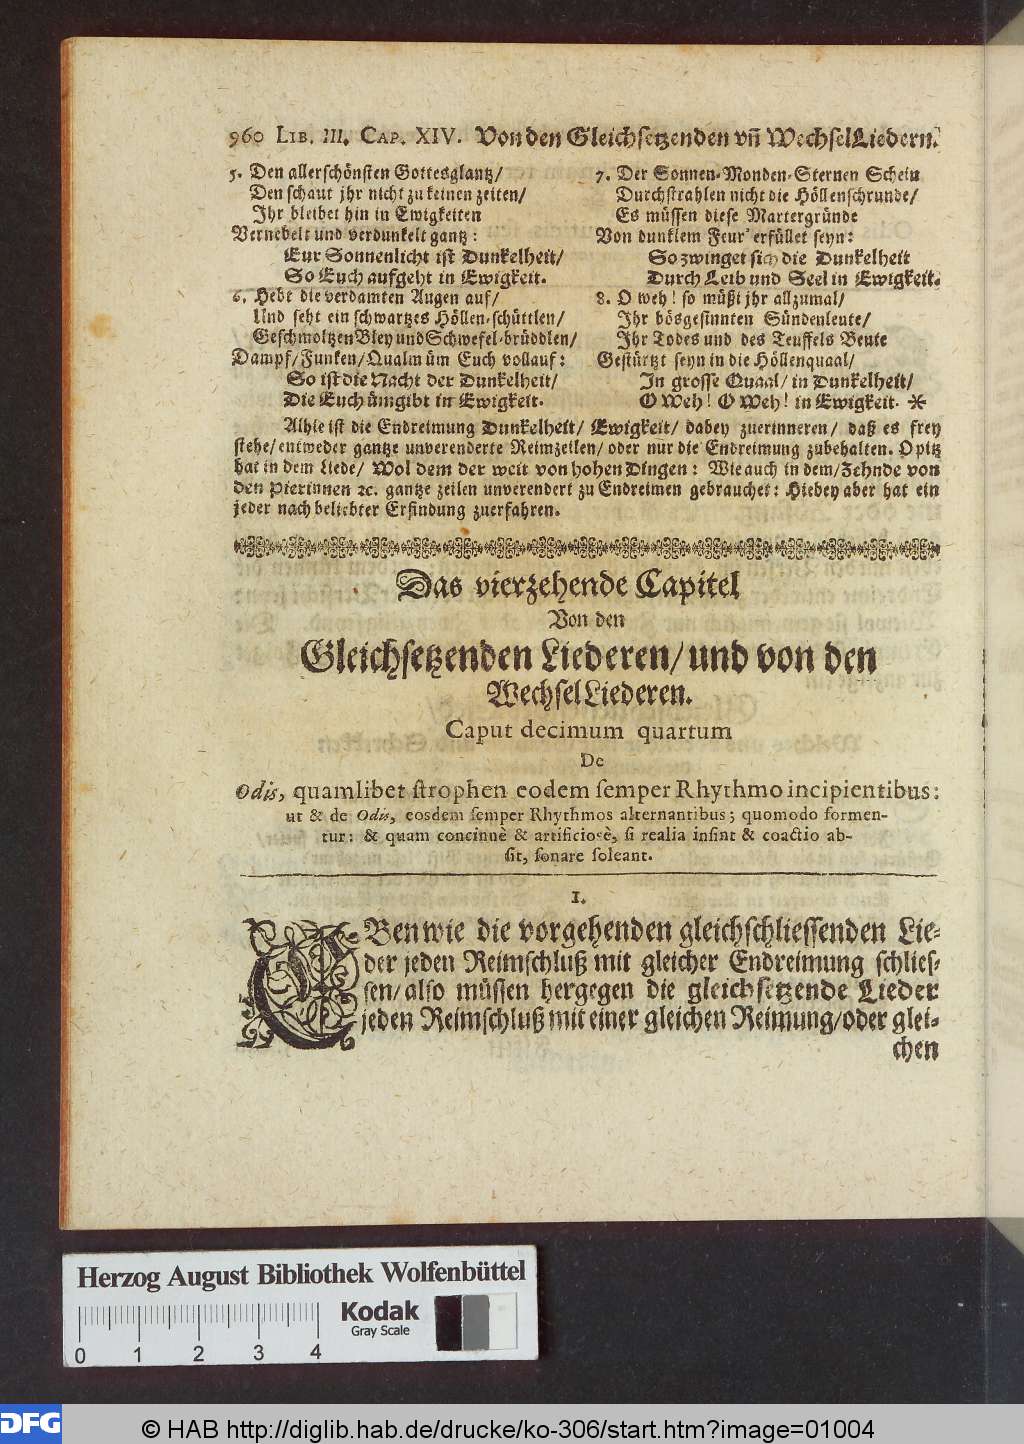 960 LIB. III. CAP. XIV. Von den Gleichsetzenden vñ WechselLiedern.
5. Den allerschönsten Gottesglantz/
Den schaut jhr nicht zu keinen zeiten/
Ihr bleibet hin in Ewigkeiten
Vernebelt und verdunkelt gantz:
Eur Sonnenlicht ist Dunkelheit/
So Euch aufgeht in Ewigkeit.
6. Hebt die verdamten Augen auf/
Und seht ein schwartzes Höllen-schüttlen/
Geschmoltzen Bley und Schwefel-brüddlen/
Dampf/Funken/Qualm üm Euch vollauf:
So ist die Nacht der Dunkelheit/
Die Euch ümgibt in Ewigkeit.
7. Der Sonnen-Monden-Sternen Schein
Durchstrahlen nicht die Höllenschrunde/
Es müssen diese Martergründe
Von dunklem Feur' erfüllet seyn:
So zwinget sich die Dunkelheit
Durch Leib und Seel in Ewigkeit.
8. O weh! so müßt jhr allzumal/
Ihr bösgesinnten Sündenleute/
Ihr Todes und des Teuffels Beute
Gestürtzt seyn in die Höllenquaal/
In grosse Quaal/ in Dunkelheit/
O Weh! O Weh! in Ewigkeit. *
Alhie ist die Endreimung Dunkelheit/ Ewigkeit/ dabey zuerinneren/ daß es frey
stehe/entweder gantze unverenderte Reimzeilen/ oder nur die Endreimung zubehalten. Opitz
hat in dem Liede/ Wol dem der weit von hohen Dingen: Wie auch in dem/Zehnde von
den Pierinnen ꝛc. gantze zeilen unverendert zu Endreimen gebrauchet: Hiebey aber hat ein
jeder nach beliebter Erfindung zuerfahren.
Das vierzehende Capitel
Von den
Gleichsetzenden Liederen/und von den
WechselLiederen.
Caput decimum quartum
De
Odis, quamlibet strophen eodem semper Rhythmo incipientibus:
ut & de Odis, eosdem semper Rhythmos alternantibus; quomodo formen-
tur: & quam concinnè & artificiosè, si realia insint & coactio ab-
sit, sonare soleant.
I.
EBen wie die vorgehenden gleichschliessenden Lie-
der jeden Reimschluß mit gleicher Endreimung schlies-
sen/also müssen hergegen die gleichsetzende Lieder
jeden Reimschluß mit einer gleichen Reimung/oder glei-
chen
Herzog August Bibliothek Wolfenbüttel
Kodak
Gray Scale
0 1 2 3 4
DFG
© HAB http://diglib.hab.de/drucke/ko-306/start.htm?image=01004